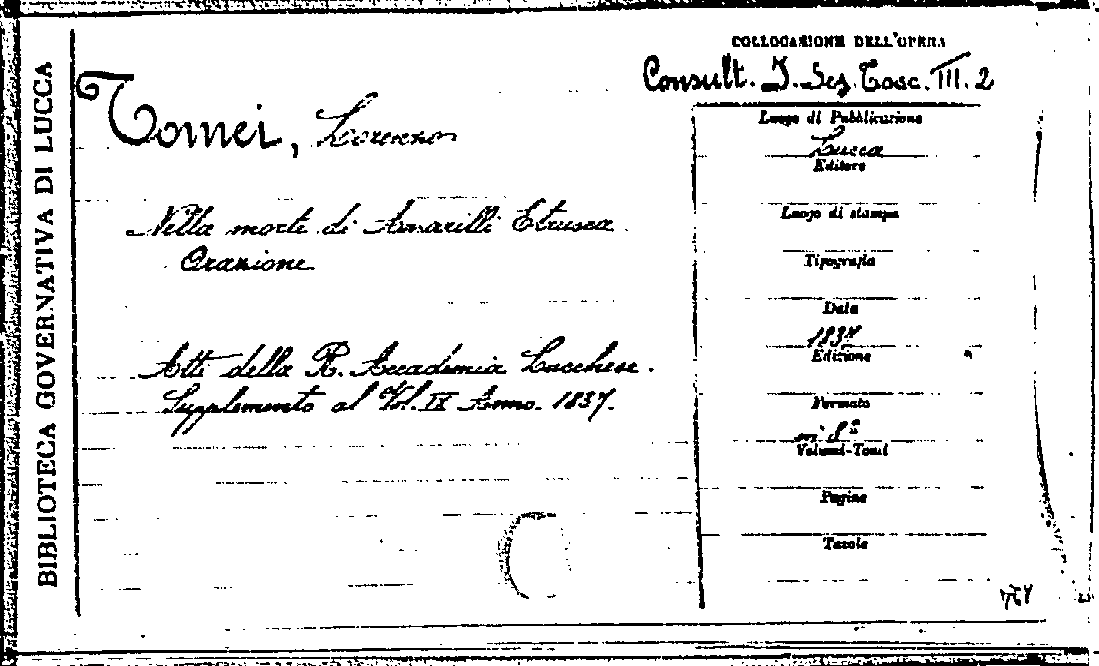 BIBLIOTECA GOVERNATIVA DI LUCCA
COLLOCAZIONE DELL'OPERA
Consult. I. Sez. Tosc. III. 2
Tomei, Lorenzo
Nella morte di Amarilli Etrusca
Orazione
Atti della R. Accademia Lucchese.
Supplemento al Vol. IX Anno. 1837.
Luogo di Pubblicazione
Lucca
Editore
Luogo di stampa
Tipografia
Data
1837
Edizione
Formato
in 8º
Volumi-Tomi
Pagine
Tavole